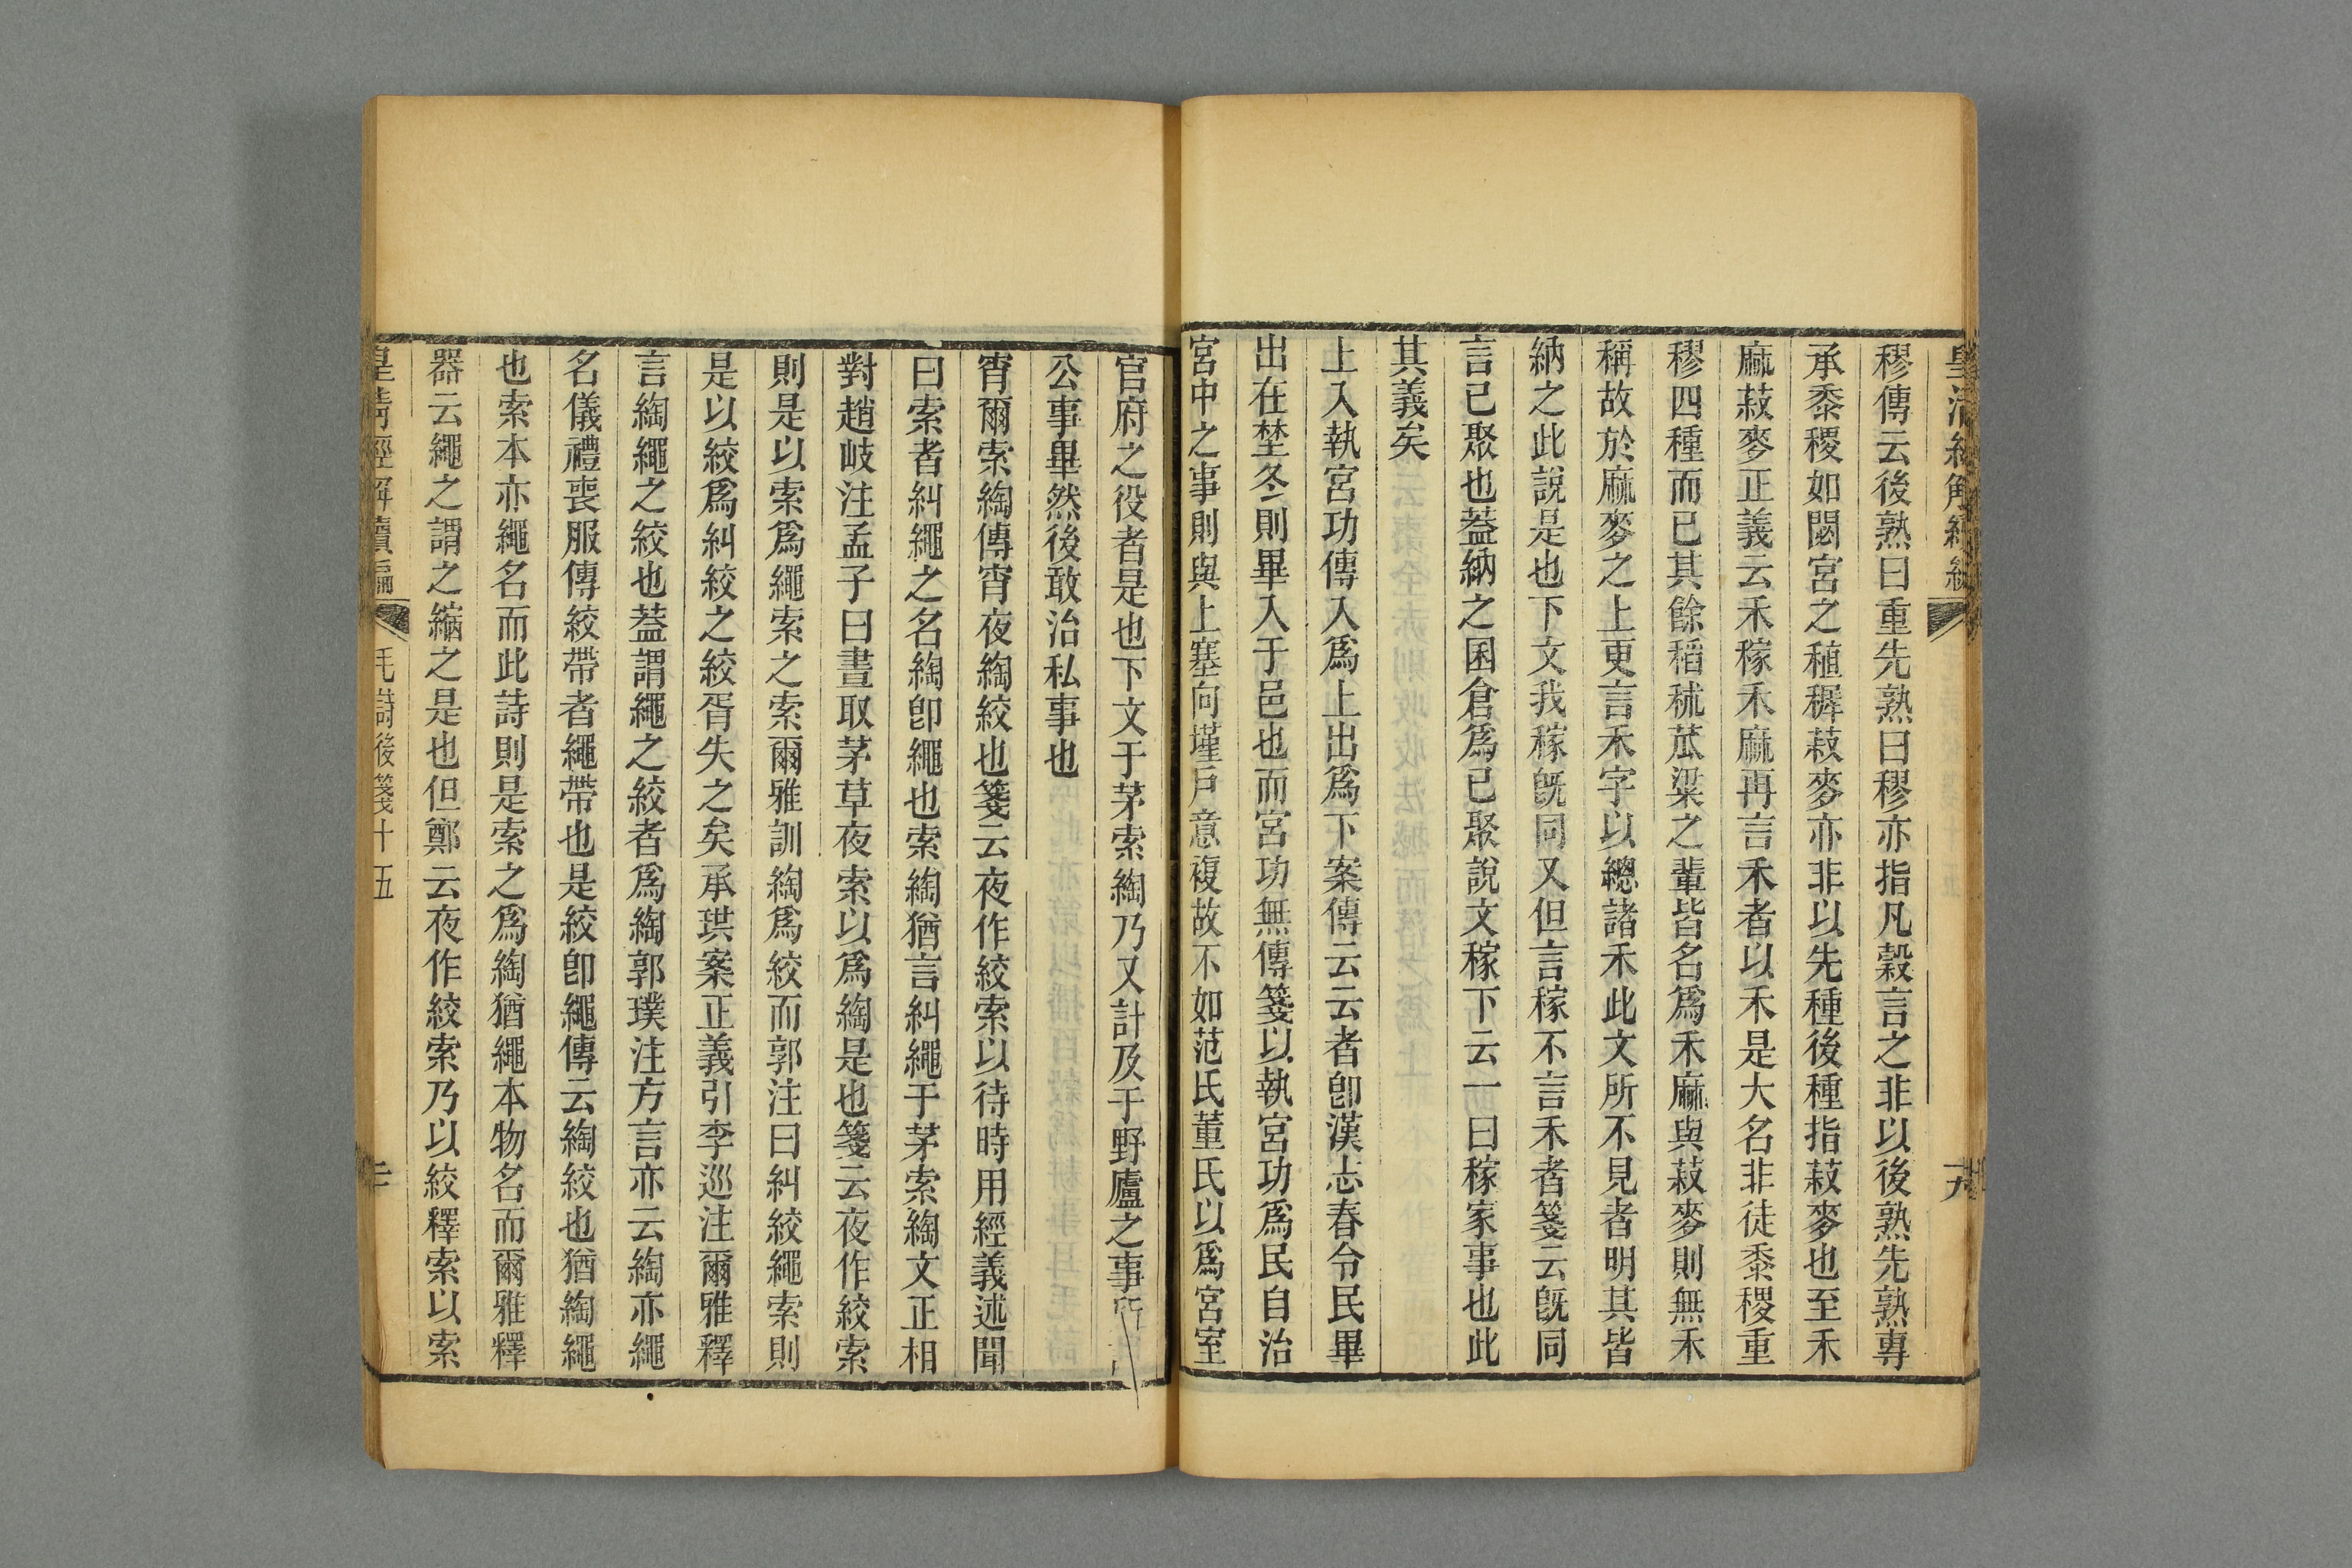 穋傳云後熟曰重先熟曰穋亦指凡穀言之非以後熟先熟專
承黍稷如閟宮之稙稺菽麥亦非以先種後種指菽麥也至禾
麻菽麥正義云禾稼禾麻再言禾者以禾是大名非徒黍稷重
穋四種而已其餘稻秫苽粱之輩皆名爲禾麻與菽麥則無禾
稱故於麻麥之上更言禾字以總諸禾此文所不見者明其皆
納之此說是也下文我稼旣同又但言稼不言禾者箋云旣同
言已聚也葢納之囷倉爲已聚說文稼下云一曰稼家事也此
其義矣
上入執宮功傳入爲上出爲下案傳云云者卽漢志春令民畢
出在埜冬則畢入于邑也而宮功無傳箋以執宮功爲民自治
宮中之事則與上塞向墐戸意複故不如范氏董氏以爲宮室
官府之役者是也下文于茅索綯乃又計及于野廬之事所
公事畢然後敢治私事也
宵爾索綯傳宵夜綯絞也箋云夜作絞索以待時用經義述聞
曰索者糾繩之名綯卽繩也索綯猶言糾繩于茅索綯文正相
對趙岐注孟子曰晝取茅草夜索以爲綯是也箋云夜作絞索
則是以索爲繩索之索爾雅訓綯爲絞而郭注曰糾絞繩索則
是以絞爲糾絞之絞胥失之矣承珙案正義引李巡注爾雅釋
言綯繩之絞也葢謂繩之絞者爲綯郭璞注方言亦云綯亦繩
名儀禮喪服傳絞帶者繩帶也是絞卽繩傳云綯絞也猶綯繩
也索本亦繩名而此詩則是索之爲綯猶繩本物名而爾雅釋
器云繩之謂之縮之是也但鄭云夜作絞索乃以絞釋索以索
皇淸經解續編
毛詩後箋十五